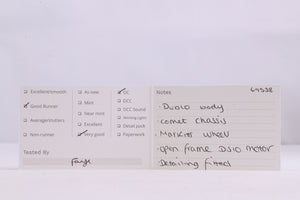 ☐ Excellent/smooth
☑ Good Runner
☐ Average/stutters
☐ Non-runner
☐ As new
☐ Mint
☐ Near mint
☐ Excellent
☑ Very good
☑ DC
☐ DCC
☐ DCC Sound
☐ Working Lights
☐ Detail pack
☐ Paperwork
Tested By
Notes
· body
· comet chassis
· wheel
· open frame motor
· Detailing fitted